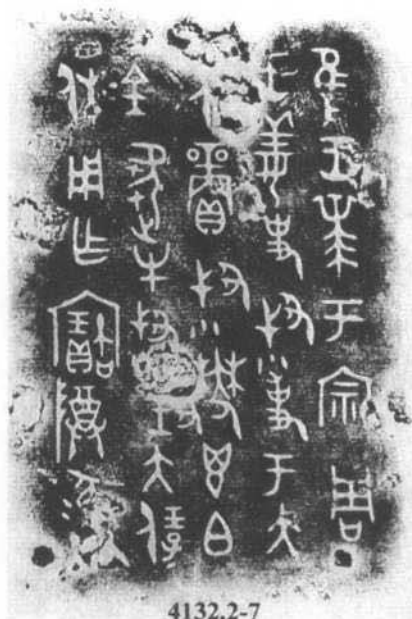 隹王𠦪于宗周
王姜史叔事于大
保賞叔鬱鬯白
金芻牛叔對大保
休用乍寶尊彝
4132.2-7